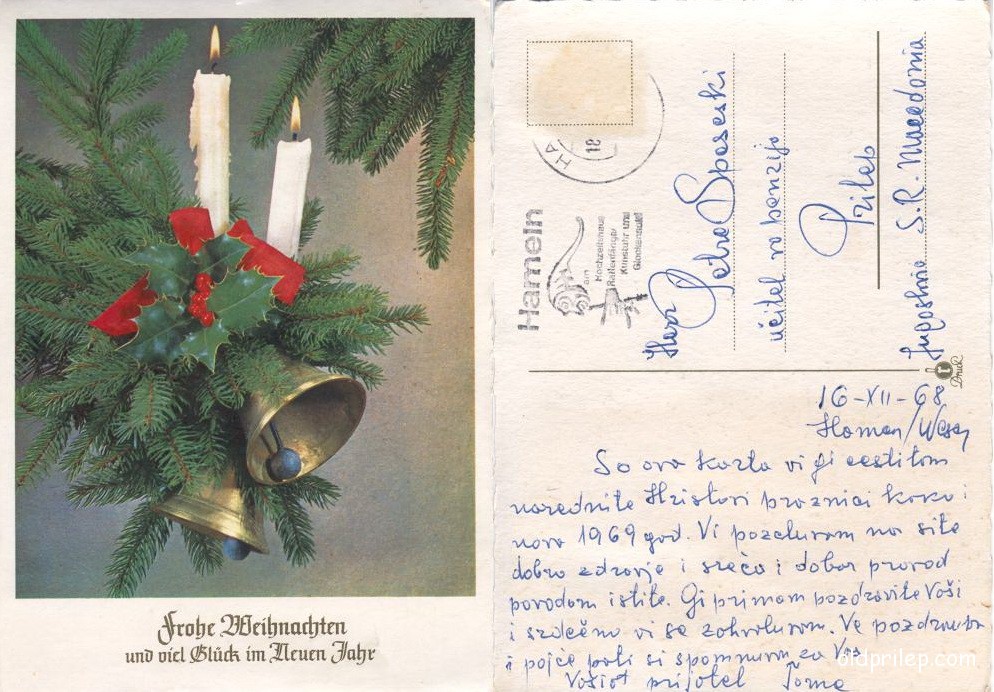 Frohe Weihnachten
und viel Glück im Neuen Jahr
HA
18
Hameln
Hochzeitshaus
Rattenfänger
Kunstuhr und
Glockenspiel
Herr Petre Spaseski
učitel vo penzija
Prilep
Jugoslavie S.R. Macedonia
Druck
16-XII-68
/Weser
So ova karta vi gi cestitam
narednite Hristovi praznici kako i
nova 1969 god. Vi pozeluvam na site
dobro zdravje i sreća i dobar
povodom istite. Gi primam pozdravite Vaši
i srdečno vi se zahvaluvam. Ve pozdravuva
i pojće pati si spomnuva za Vas
Vašiot prijatel Tome
oldprilep.com